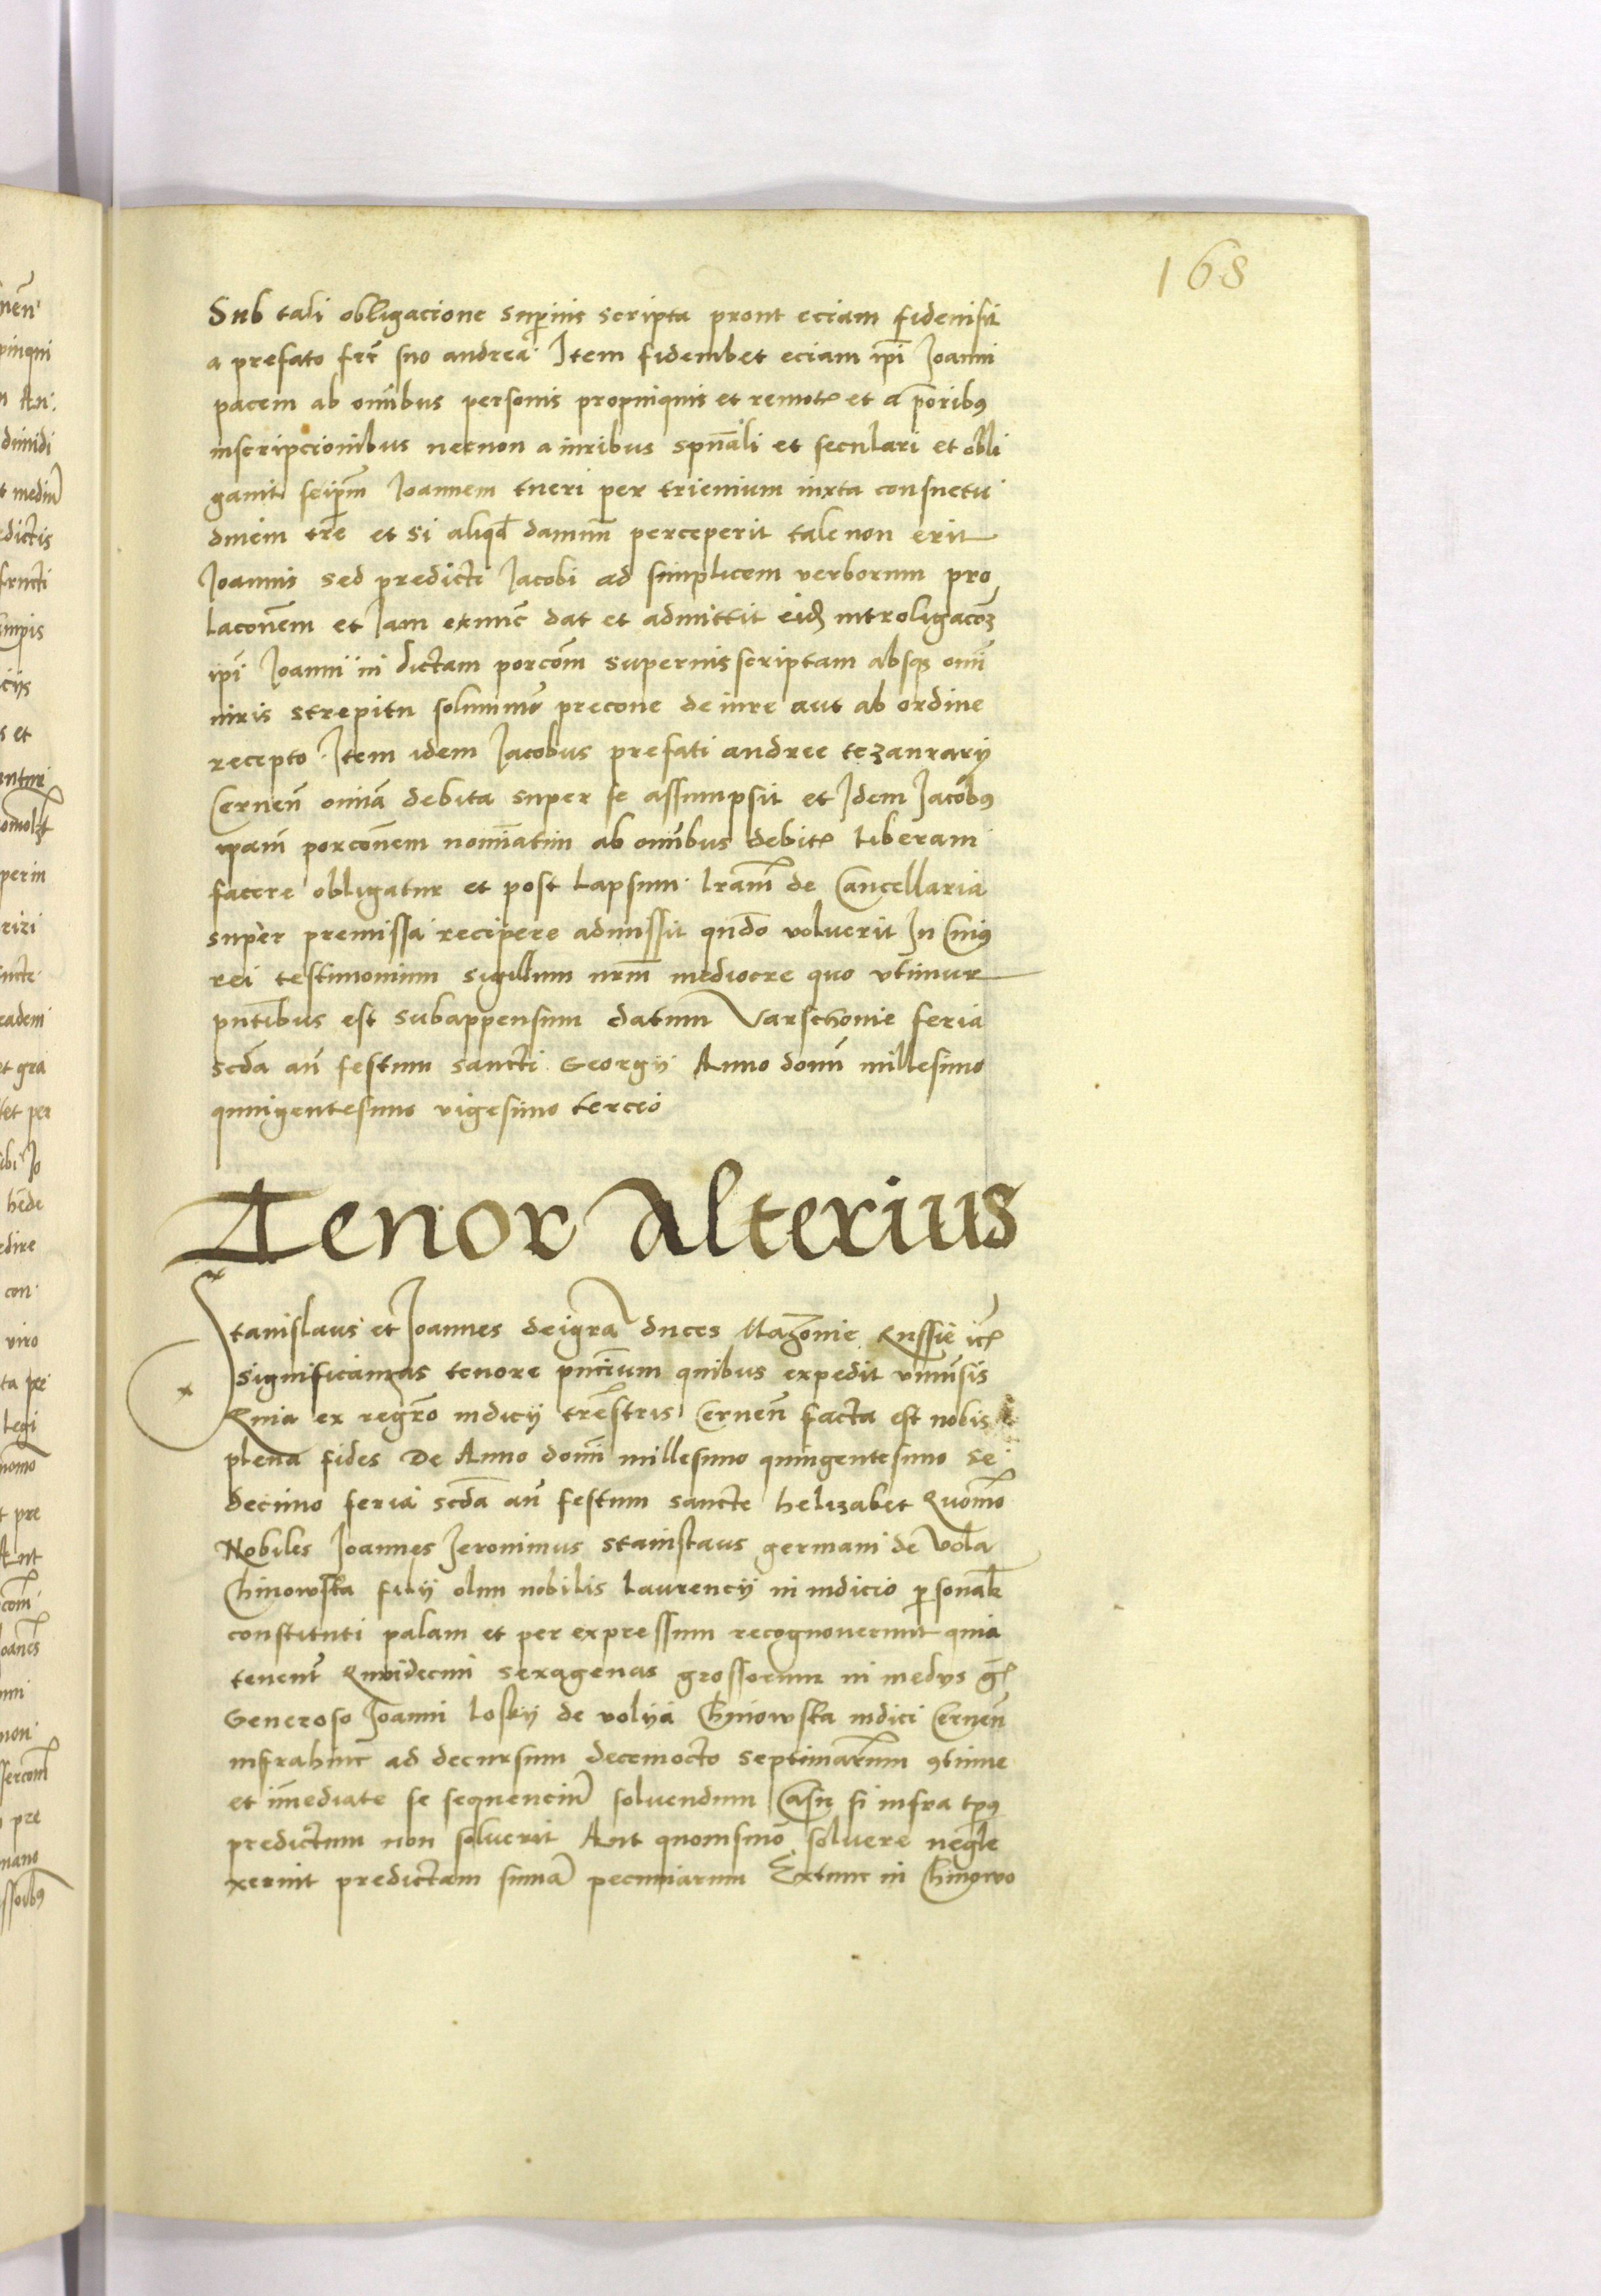 168
Sub tali obligacione supͥius scripta prout eciam fideiusit
a prefato frē suo andrea Item fideiubet eciam ipī Ioanni
pacem ab omībus personis propinquis et remotꝭ et a p̄oribꝰ
inscripcionibus necnon a iuribus spūali et seculari et obli
gauit seip̄m Ioannem tueri per trienium iuxta consuetu
dinem tr̄e et si aliqd̄ damnū perceperit tale non erit
Ioannis sed predicti Iacobi ad simplicem verborum pro
lacōnem et Iam extunc dat et admittit eidꝫ introligacōꝫ
ipī Ioanni in dictam porcōm superius scriptam absqꝫ omī
iuris strepitu solummō precone de iure aut ab ordine
recepto Item idem Iacobus prefati andree tezaurarij
Cernen̄ omīa debita super se assumpsit et Idem Iacobꝰ
ipam̄ porcōnem nomīatim ab omībus debitꝭ liberam
facere obligatur et post lapsum lr̄am de Cancellaria
super premissa recipere admissit qn̄do voluerit In Cuiꝰ
rei testimonium sigillum nr̄m mediocre quo vtimur
pn̄tibus est subappensum datum Varschouie feria
scd̄a an̄ festum sancti Georgij Anno domī millesimo
quingentesimo vigesimo tercio
Tenor Alterius
Stanislaus et Ioannes dei gr̄a duces Mazouie Russie ꝛcꝭ
significamus tenore pn̄cium quibus expedit vniūsis
Quia ex regr̄o iudicij trēstris Cernen̄ facta est nobis
plena fides De Anno domī millesimo quingentesimo se
decimo feria scd̄a an̄ festum sancte helizabet Quomō
Nobiles Ioannes Ieronimus stanislaus germani de Vola
Chinowska filij olim nobilis Laurencij in iudicio ꝑsonal̄r
constituti palam et per expressum recognouerunt quia
tenent̄ Quindecim sexagenas grossorum in medys ḡꝭ
Generoso Ioanni Loskij de volya Chinowska iudici Cernen̄
infrahinc ad decursum decemocto septimanarum ꝯtinue
et im̄ediate se sequenciū soluendum Casu si infra tp̄ꝰ
predictum non soluerit Aut quomōmō soluere negle
xerint predictam sum̄ā pecuniarum Extunc in Chinowo